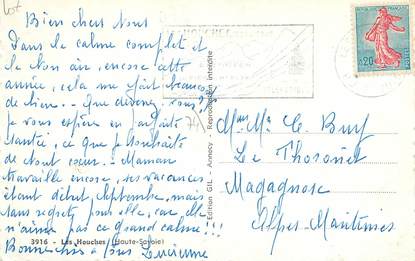 Bien chers Vous
Dans le calme complet et
le bon air, encore cette
année, cela me fait beaucoup
de bien. - Que devenez-vous ?
je vous espère en parfaite
santé, ce que je souhaite
de tout cœur. Maman
travaille encore, ses vacances
étant début septembre, mais
sans regrets pour elle, car elle
n'aime pas ce grand calme !!!
Bonne chos à tous Lucienne
3916 - Les Houches (Haute-Savoie)
Edition GIL - Annecy - Reproduction interdite
REPUBLIQUE FRANÇAISE
0,20
POSTES
Mme M. C. Buf
Le Thoronet
Magagnosc
Alpes-Maritimes